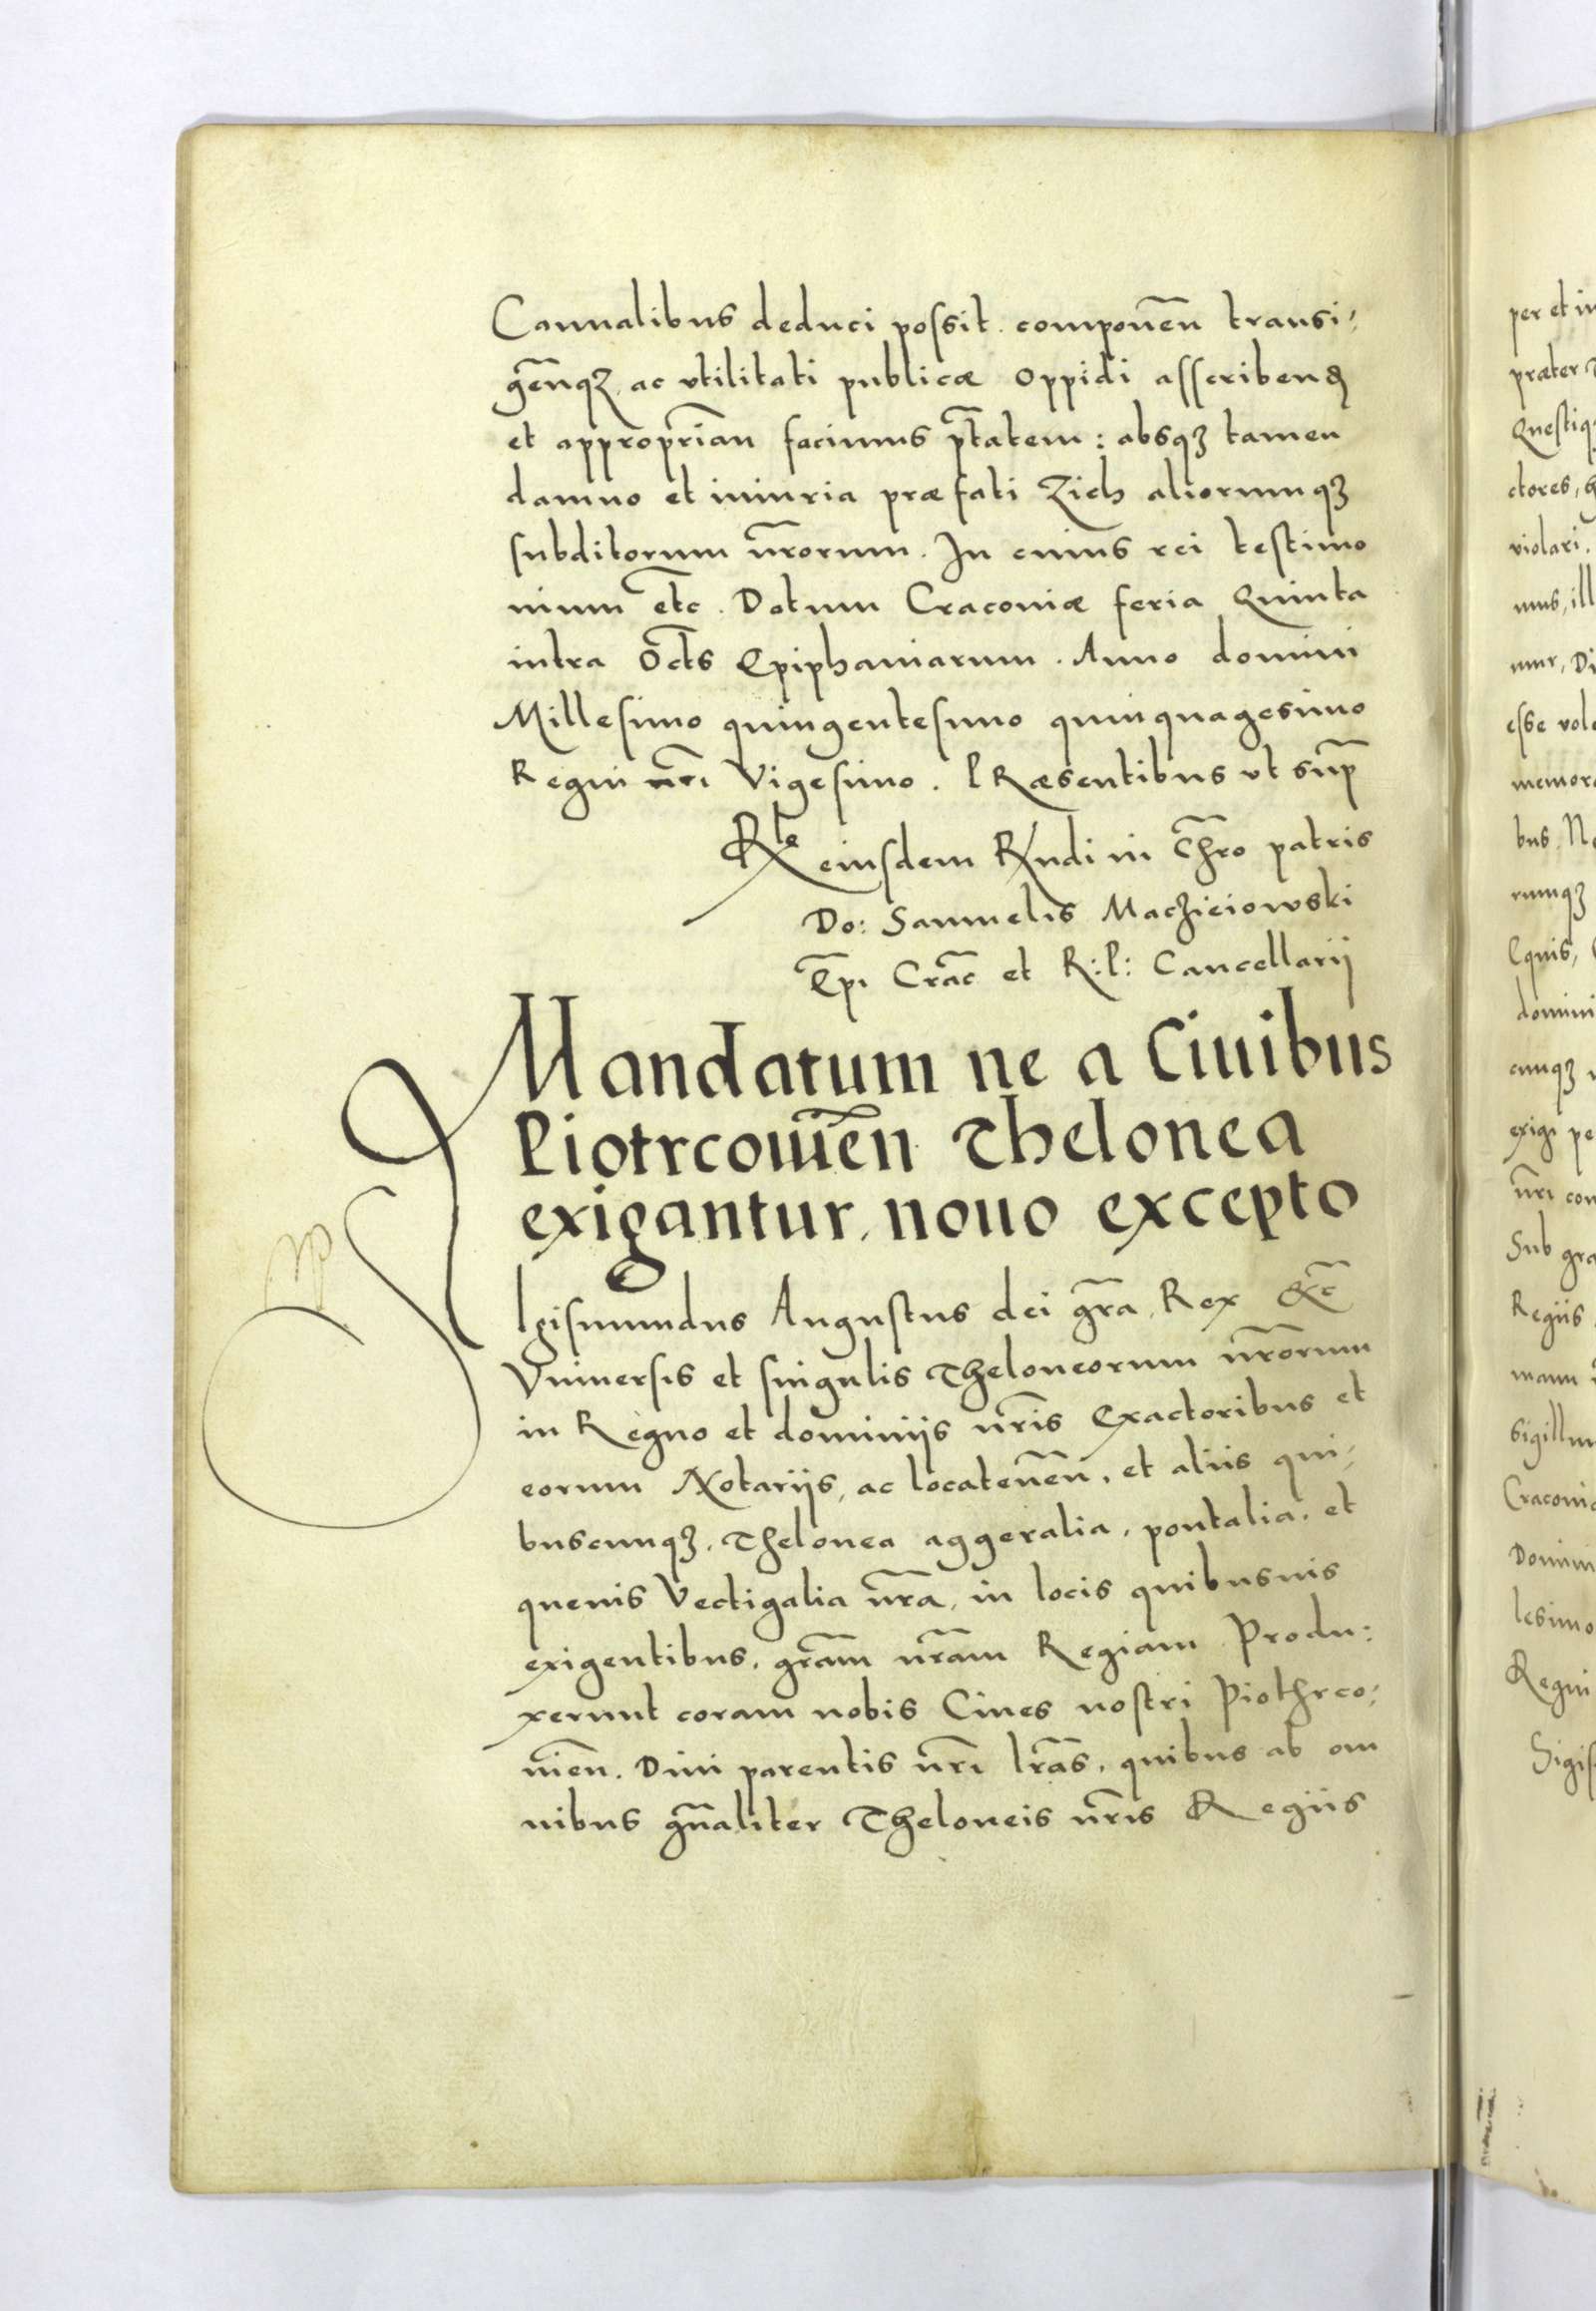 Cannalibus deduci possit. componen̄ transi⸗
gen̄q₃, ac vtilitati publicæ oppidi asscribenđ
et appropriān facimus p̄tatem : absq₃ tamen
damno et iniuria præfati Zich aliorumq₃
subditorum nr̄orum. In cuius rei testimo
nium etc̄. Datum Cracouiæ feria Quinta
intra Oct̄s Epiphaniarum. Anno domini
Millesimo quingentesimo quinquagesimo
Regni nr̄i Vigesimo. PRæsentibus vt sup̄
Rte eiusdem Rndi in Chr̄o patris
Do: Samuelis Maczieiowski
Ep̄i Crac̄ et R: P: Cancellarij
Mandatum ne a Ciuibus
Piotrcouien̄ Thelonea
exigantur, nouo excepto
Sigismundus Augustus dei gr̄a, Rex &c̄
Vniuersis et singulis Theloneorum nr̄orum
in Regno et dominijs nr̄is Exactoribus et
eorum Notarijs, ac locatenen̄, et aliis qui⸗
buscunq₃, Thelonea aggeralia, pontalia, et
queuis Vectigalia nr̄a, in locis quibusuis
exigentibus, gr̄am nr̄am Regiam. Produ:
xerunt coram nobis Ciues nostri Piothrco:
uien̄. Diui parentis nr̄i lr̄as, quibus ab om
nibus gn̄aliter Theloneis nr̄is Regiis
per et in
præter
Questiq
ctores,
violari.
mus, ill
mur, Di
esse vol
memor
bus. N
rumq₃
Equis,
domini
cunq₃
exigi pe
nr̄i con
Sub gra
Regiis
manu
Sigillu
Cracoui
Domin
lesimo
Regni
Sigis